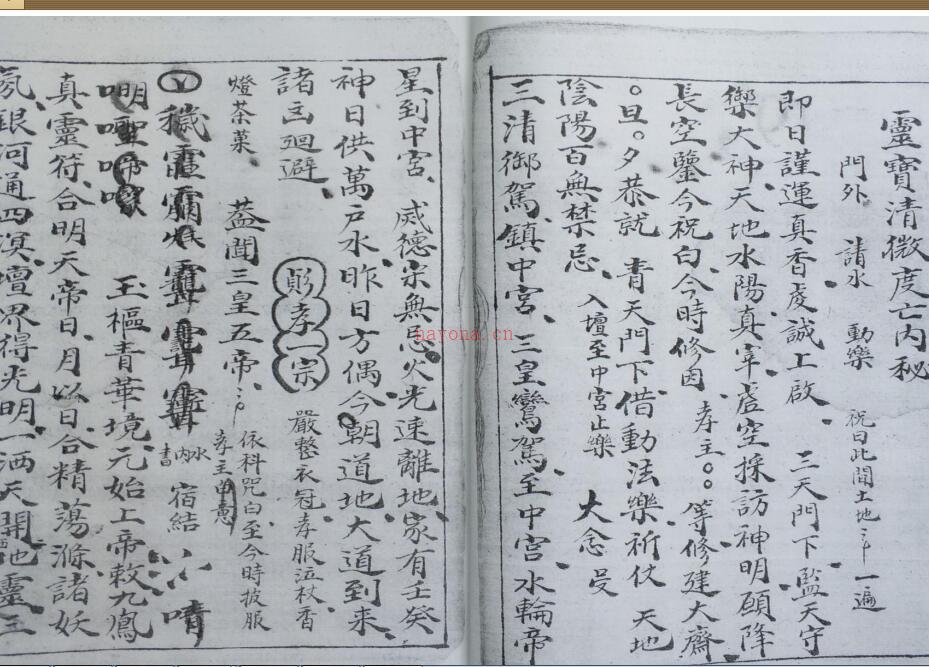 靈寶清微度亡内秘
門外 請水 動樂 祝曰此間土地 一遍
即日謹運真香虔誠上啟 三天門下監天守
禦大神天地水陽真宰虛空採訪神明願降
長空鑒今祝白今時修因 孝主。。等修建大齋
。旦。夕恭就 青天門下借動法樂祈仗 天地
陰陽百無禁忌 入壇至中宮止樂 大念
三清御駕鎮中宮三皇鸞駕至中宮水輪帝
星到中宮威德宗無忌火光速離地家有壬癸
神日供萬戶水昨日方偶今朝道地大道到来
諸凶迴避 彰孝一宗 嚴整衣冠孝服泣杖香
燈茶菓 蓋聞三皇五帝 依科咒白至今時披服
孝主申意
穢 水内書 宿結
唵 玉樞青華境元始上帝敕九鳳
真靈符合明天帝日月以日合精蕩滌諸妖
氛銀河通四溟壇界得光明一洒天開地靈三
hayona.cn